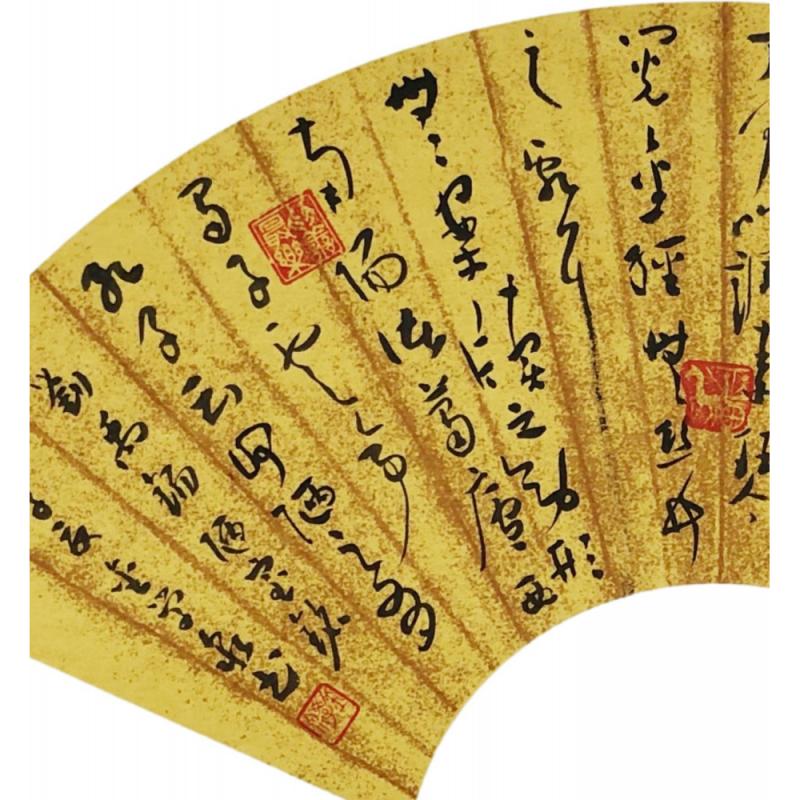 可以調素琴
閱金經無絲竹
之亂耳
無案牘之勞形
南陽諸葛廬西
蜀子雲亭
孔子云何陋之有
劉禹錫陋室銘
書